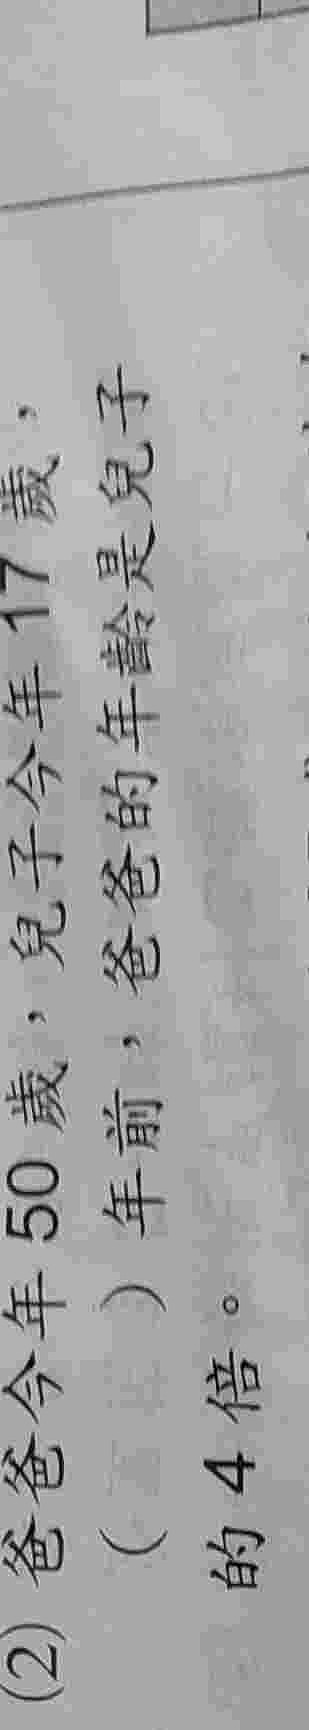 (2) 爸爸今年 50 歲，兒子今年 17 歲，
（　　）年前，爸爸的年齡是兒子
的 4 倍。